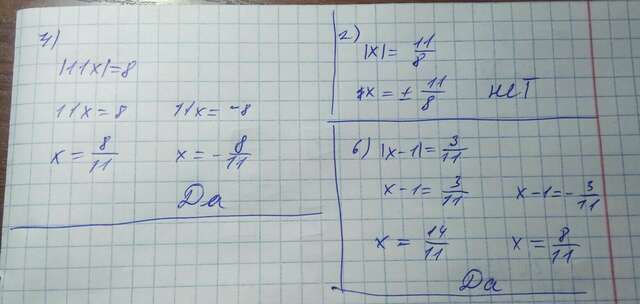 4)
|11x|=8
11x=8 11x=-8
x=8/11 x=-8/11
Да
2)
|x|=11/8
x=±11/8 нет
6) |x-1|=3/11
x-1=3/11 x-1=-3/11
x=14/11 x=8/11
Да